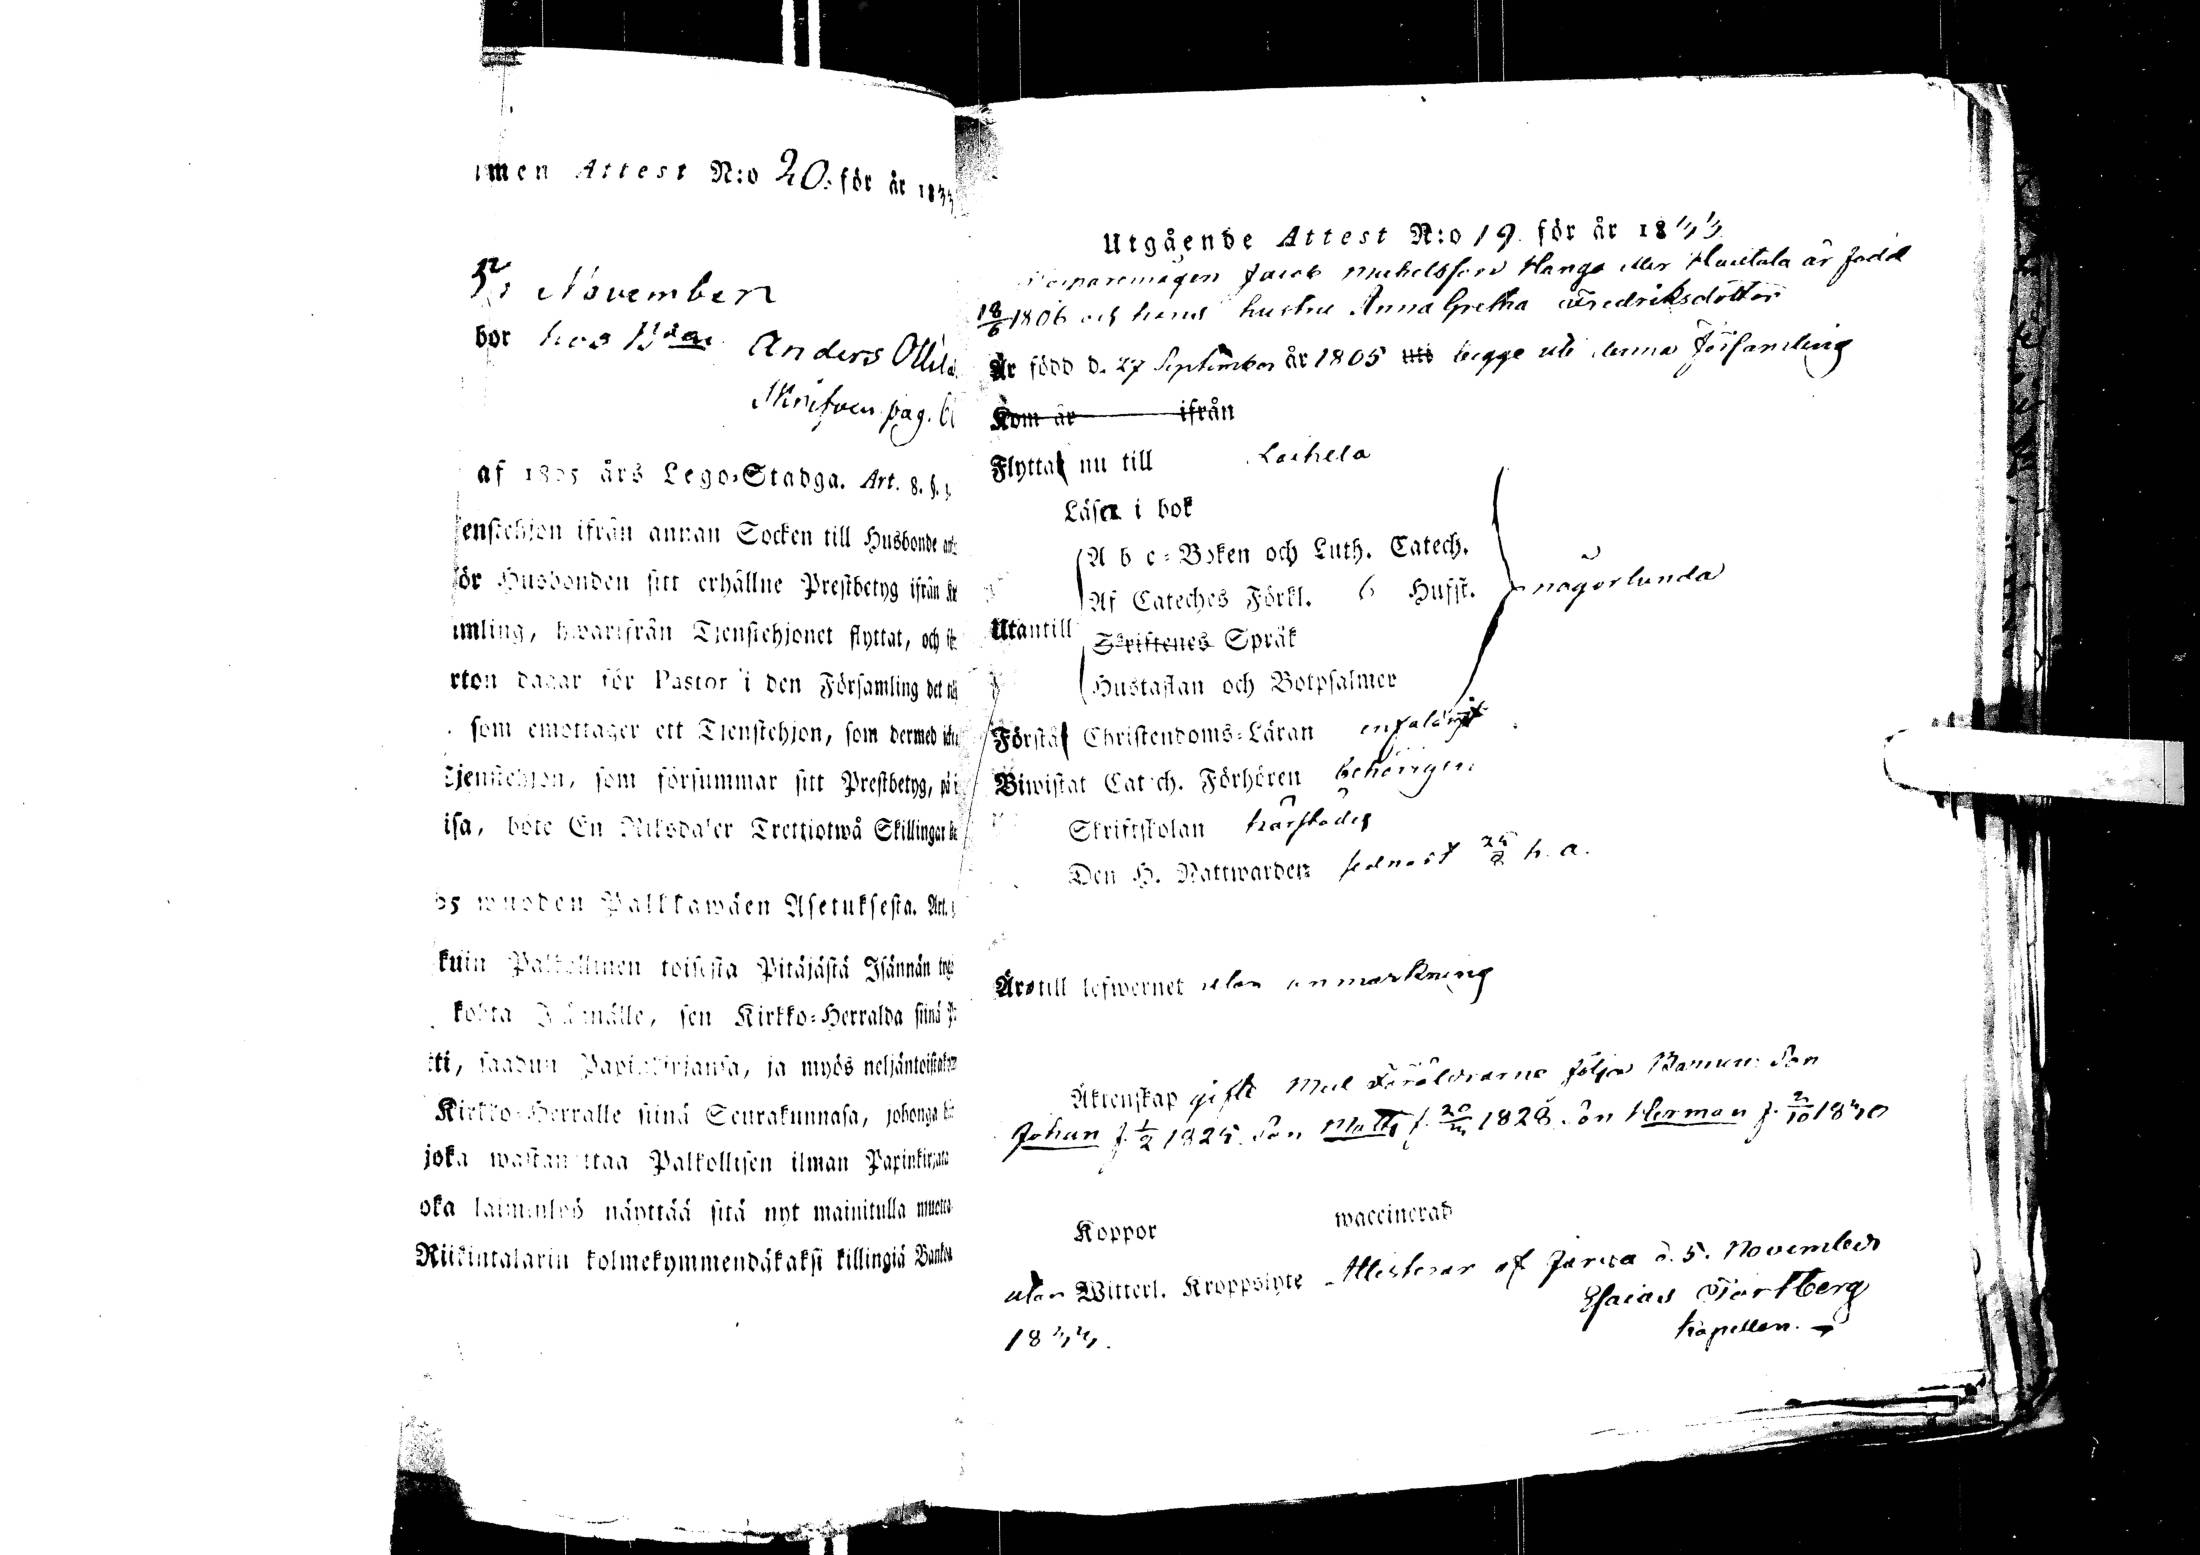 men Attest N:o 20. för år 1844
12 November
bor hos Bdn Anders Ollila
Skrifven pag.
af 1805 års Lego-Stadga. Art. 8. §.
enstehjon ifrån annan Socken till Husbonde
ör Husbonden sitt erhållne Prestbetyg ifrån
mling, hwarifrån Tjenstehjonet flyttat, och
rton dagar för Pastor i den Församling det
som emottager ett Tjenstehjon, som dermed
Tjenstehjon, som försummar sitt Prestbetyg, på
isa, böte En Riksdaler Trettiotwå Skillingar
05 wuoden Palkkawäen Asetuksesta. Art.
kuin Palkollinen toisesta Pitäjästä Isännän
kohta Isännälle, sen Kirkko-Herralda siinä
tti, saadun Papinkirjansa, ja myös neljäntoista
Kirkko-Herralle siinä Seurakunnasa, johonga
joka wastanottaa Palkollisen ilman Papinkirjata
oka laiminlyö näyttää sitä nyt mainitulla muotoa
Riikintalarin kolmekymmendäkaksi killingiä Banko
Utgående Attest N:o 19. för år 1844
Jacob Michelsson Hanga eller Hautala är född
18/6 1806 och hans hustru Anna Gretha Fredriksdotter
Är född d. 27 September år 1805 uti begge uti denna Församling
Kom år ifrån
Flyttat nu till Laihela
Läser i bok
A b c-Boken och Luth. Catech.
Af Cateches Förkl. 6 Hufst. någorlunda
Utantill
Skriftenes Språk
Hustaflan och Botpsalmer
Förstår Christendoms-Läran enfaldigt
Biwistat Catech. Förhören behörigen
Skriftskolan härstädes
Den H. Nattwarden sednast h. a.
Äro till lefwernet utan anmärkning
Äktenskap gifte Med Föräldrarne följer Barnen: Son
Johan f. 1/2 1825. Son Matts f. 20/4 1828. Son Herman f. 2/10 1840
Koppor waccinerad
utan Witterl. Kroppslyte Attesterar af d. 5. November
1844. Esaias
Kapellan.